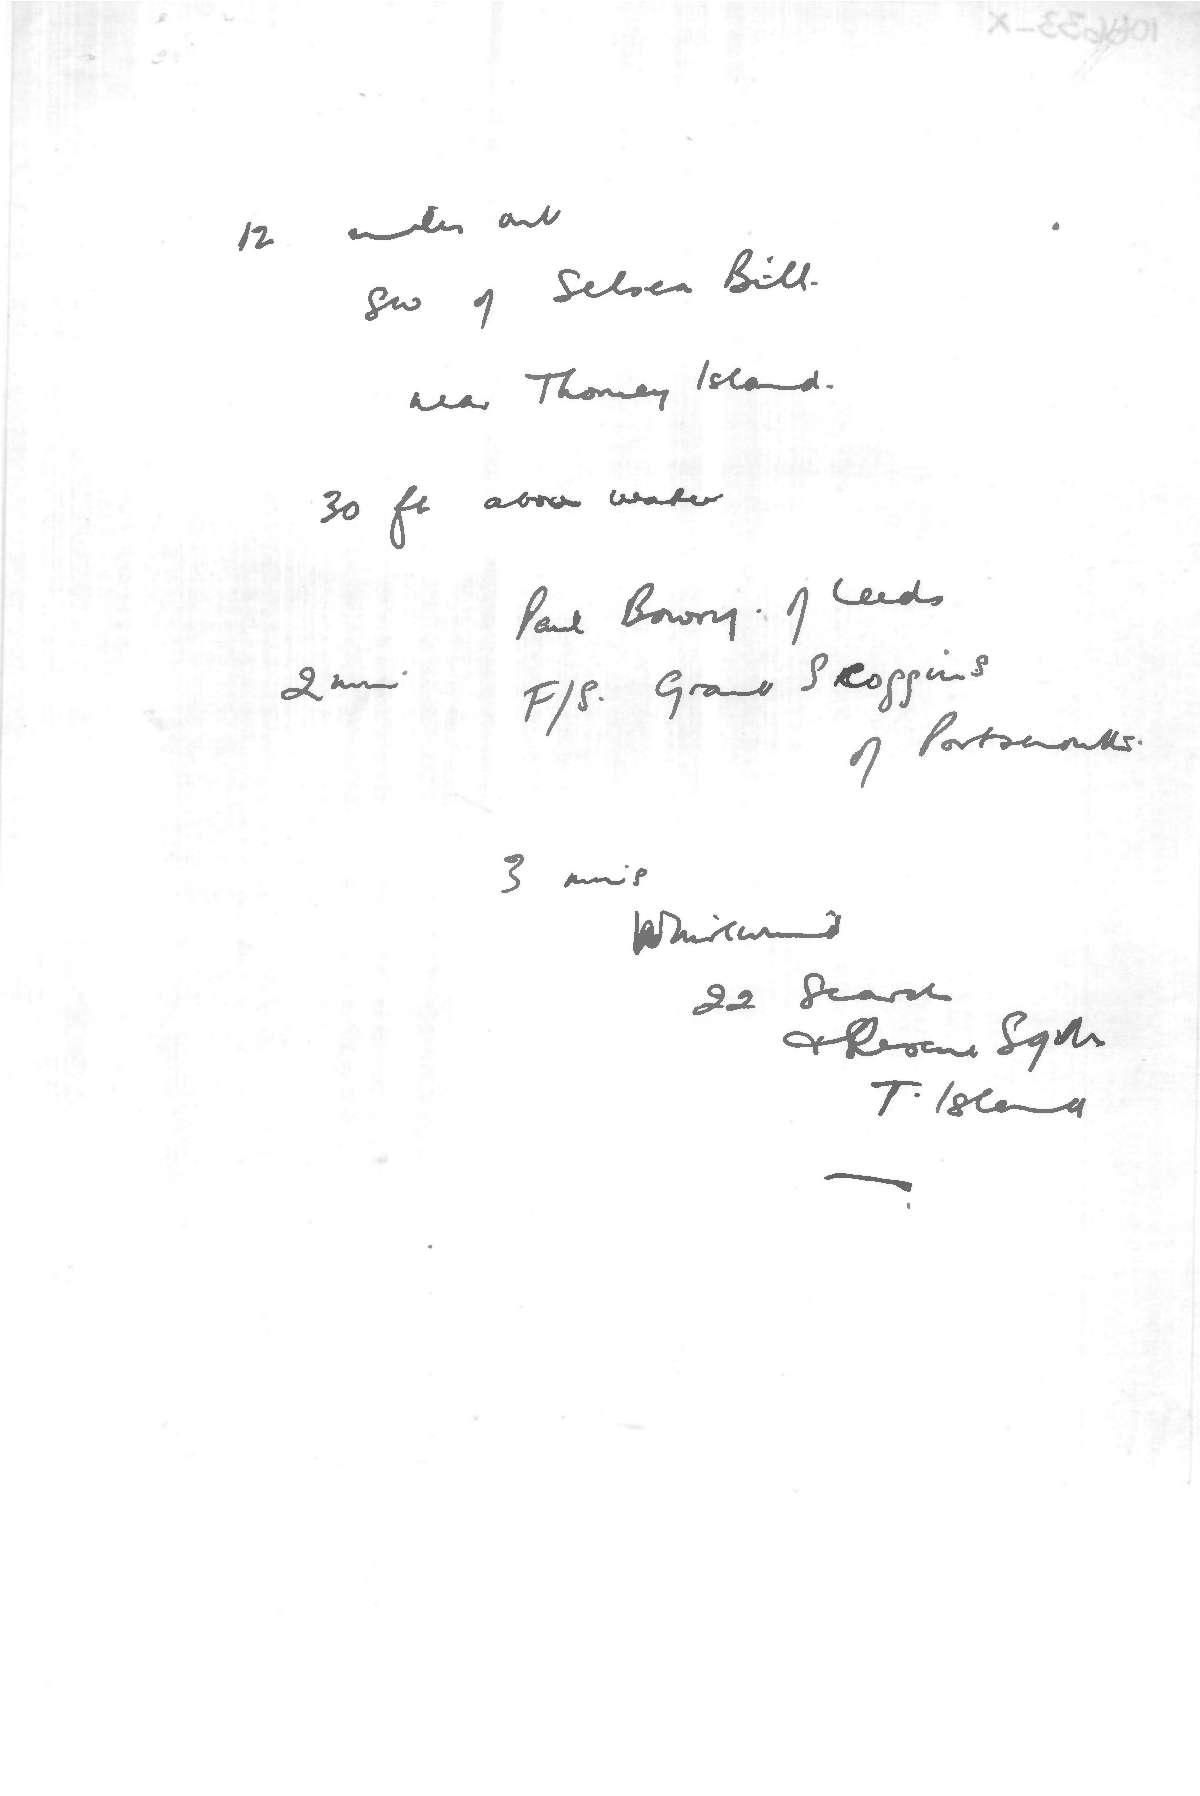 12 miles out
SW of Selsea Bill.
near Thorney Island.
30 ft above water
Paul Bowry. of Leeds
2 min F/S. Grant Skoggins
of Portsmouth.
3 mins
Whirlwind
22 Search
+ Rescue Sqdn
T. Island